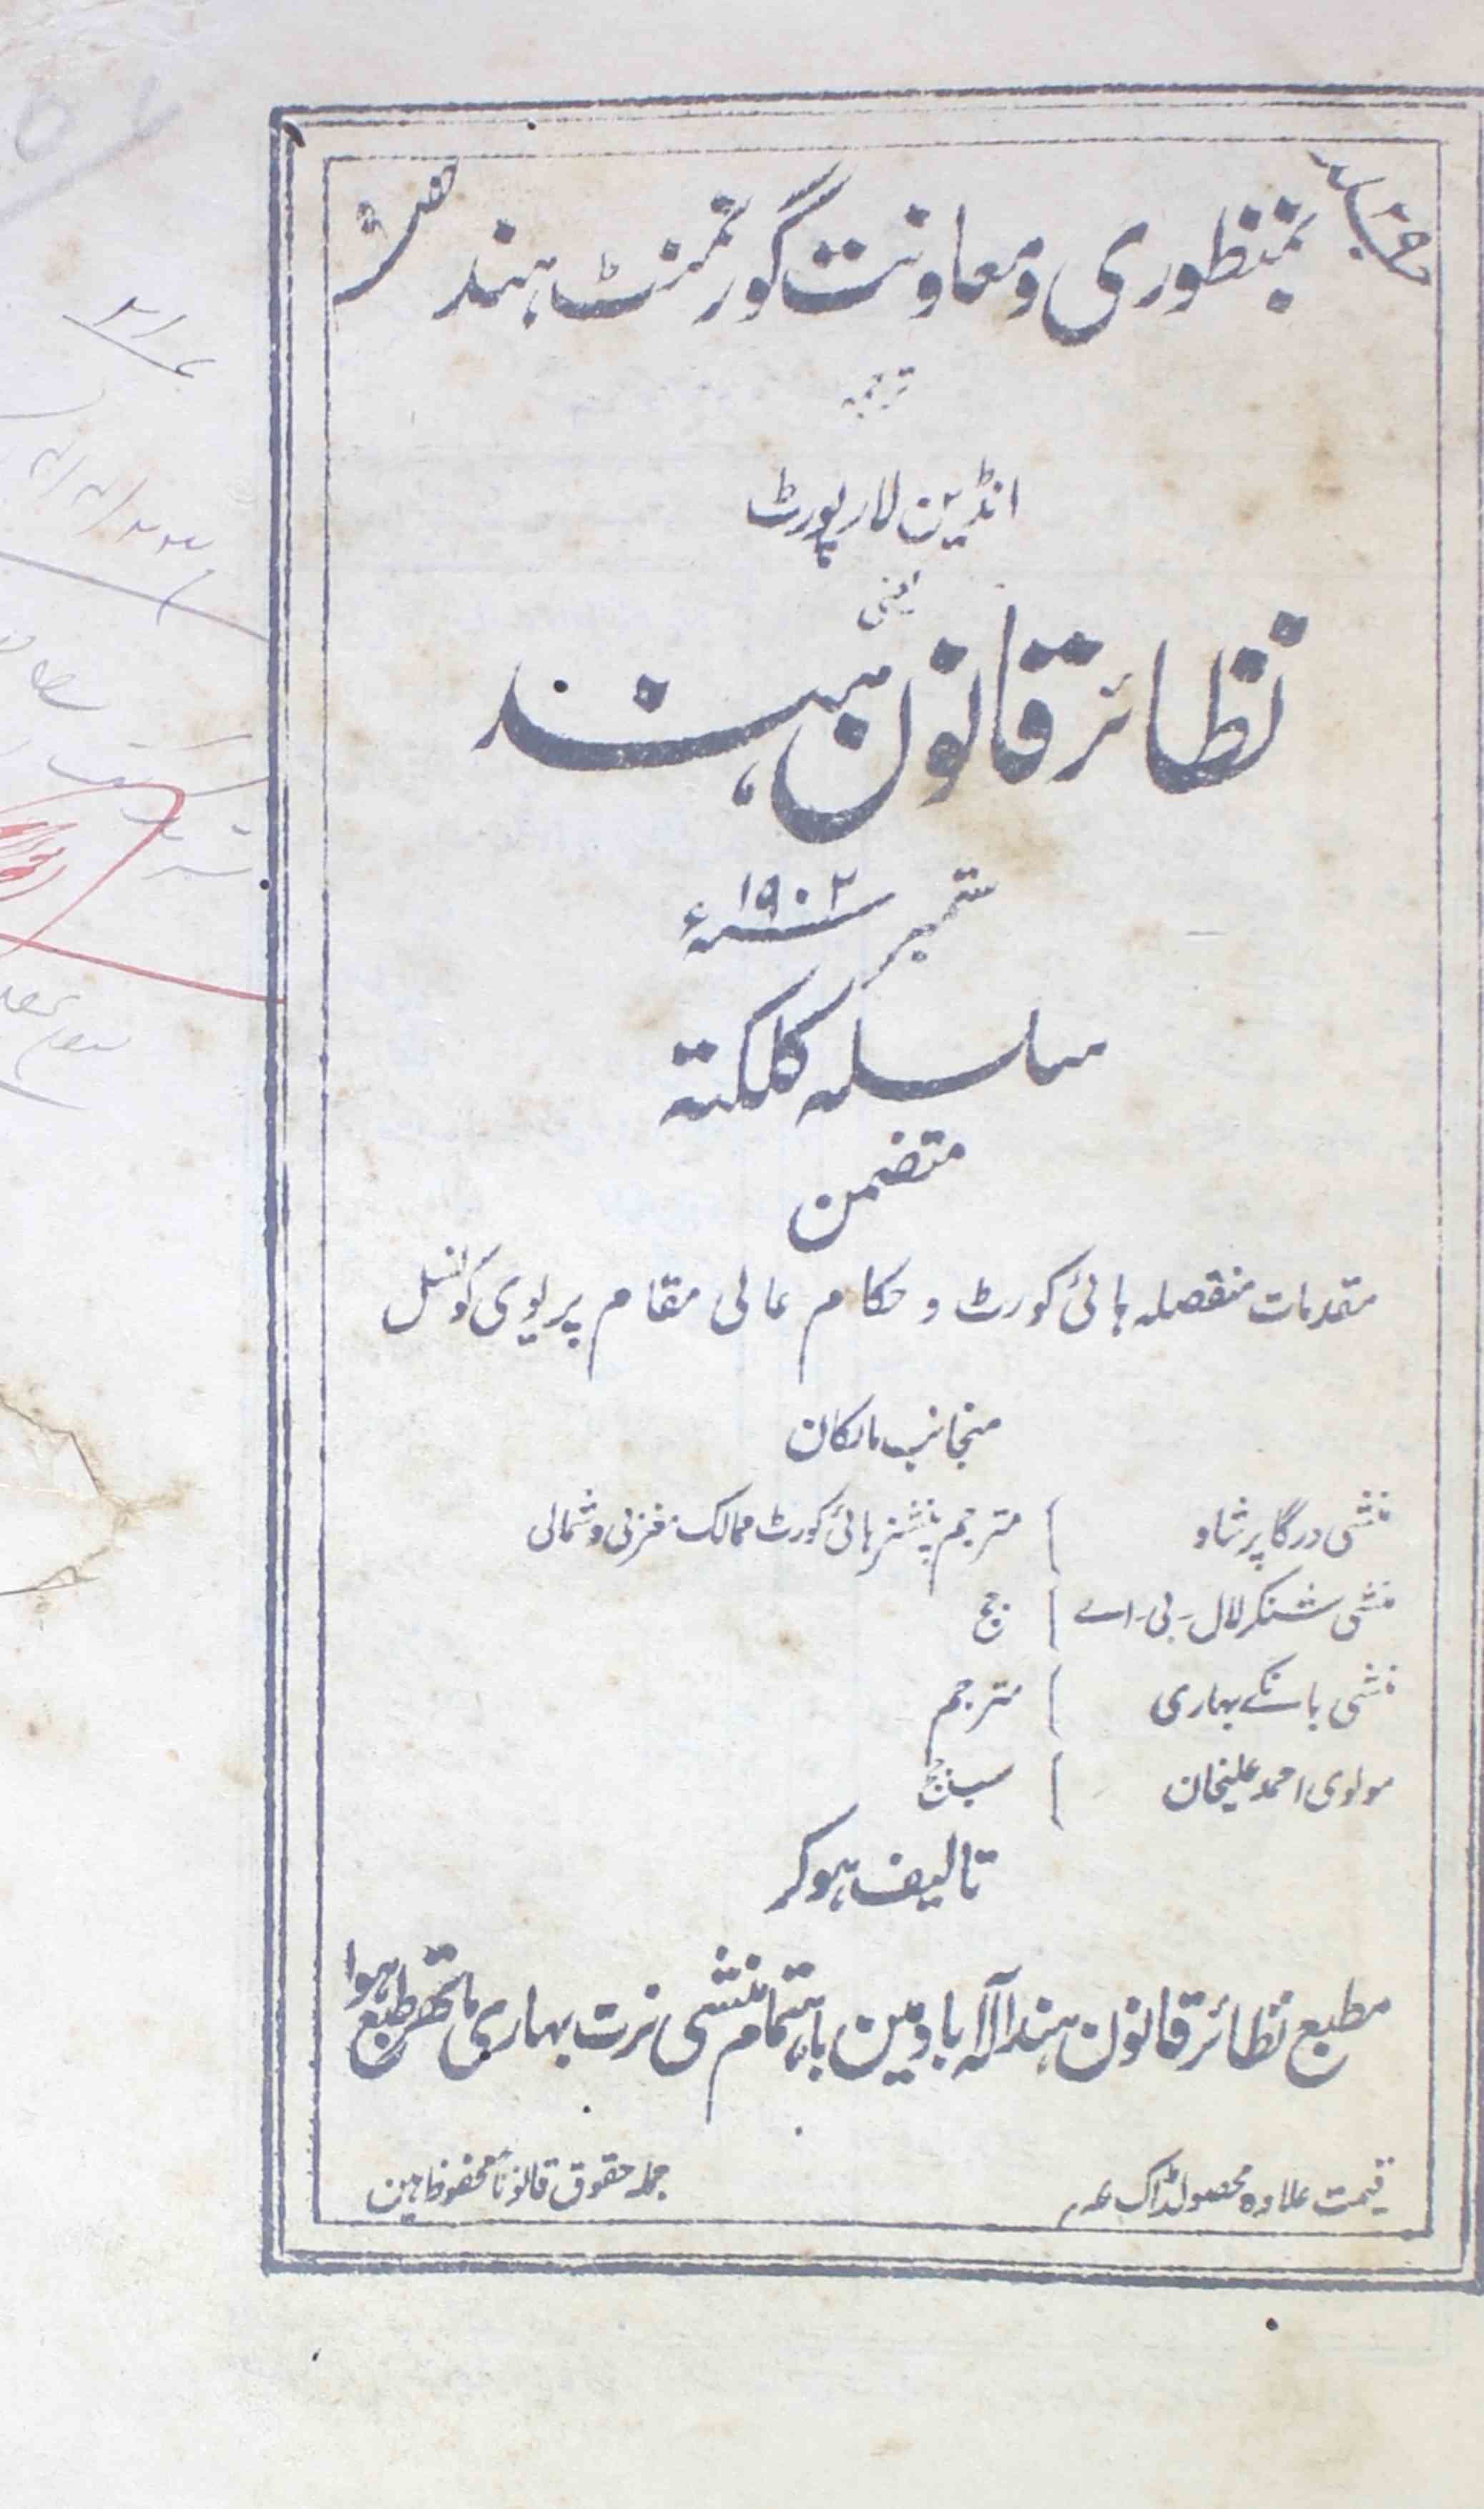 جلد ۲۹
بمنظوری و معاونت گورنمنٹ ہند
ترجمہ
انڈین لا رپورٹ
یعنی
نظائر قانون ہند
ستمبر ۱۹۰۲ء
سلسلہ کلکتہ
متضمن
مقدمات منفصلہ ہائی کورٹ و حکام عالی مقام پریوی کونسل
منجانب مالکان
منشی درگا پرشاد مترجم پنشنر ہائی کورٹ ممالک مغربی و شمالی
منشی شنکر لال - بی - اے جج
منشی بانکے بہاری مترجم
مولوی احمد علیخان سب جج
تالیف ہو کر
مطبع نظائر قانون ہند الہ آباد مین باہتمام منشی نرت بہاری ماتھر طبع ہوا
قیمت علاوہ محصولڈاک
جملہ حقوق قانوناً محفوظ ہین